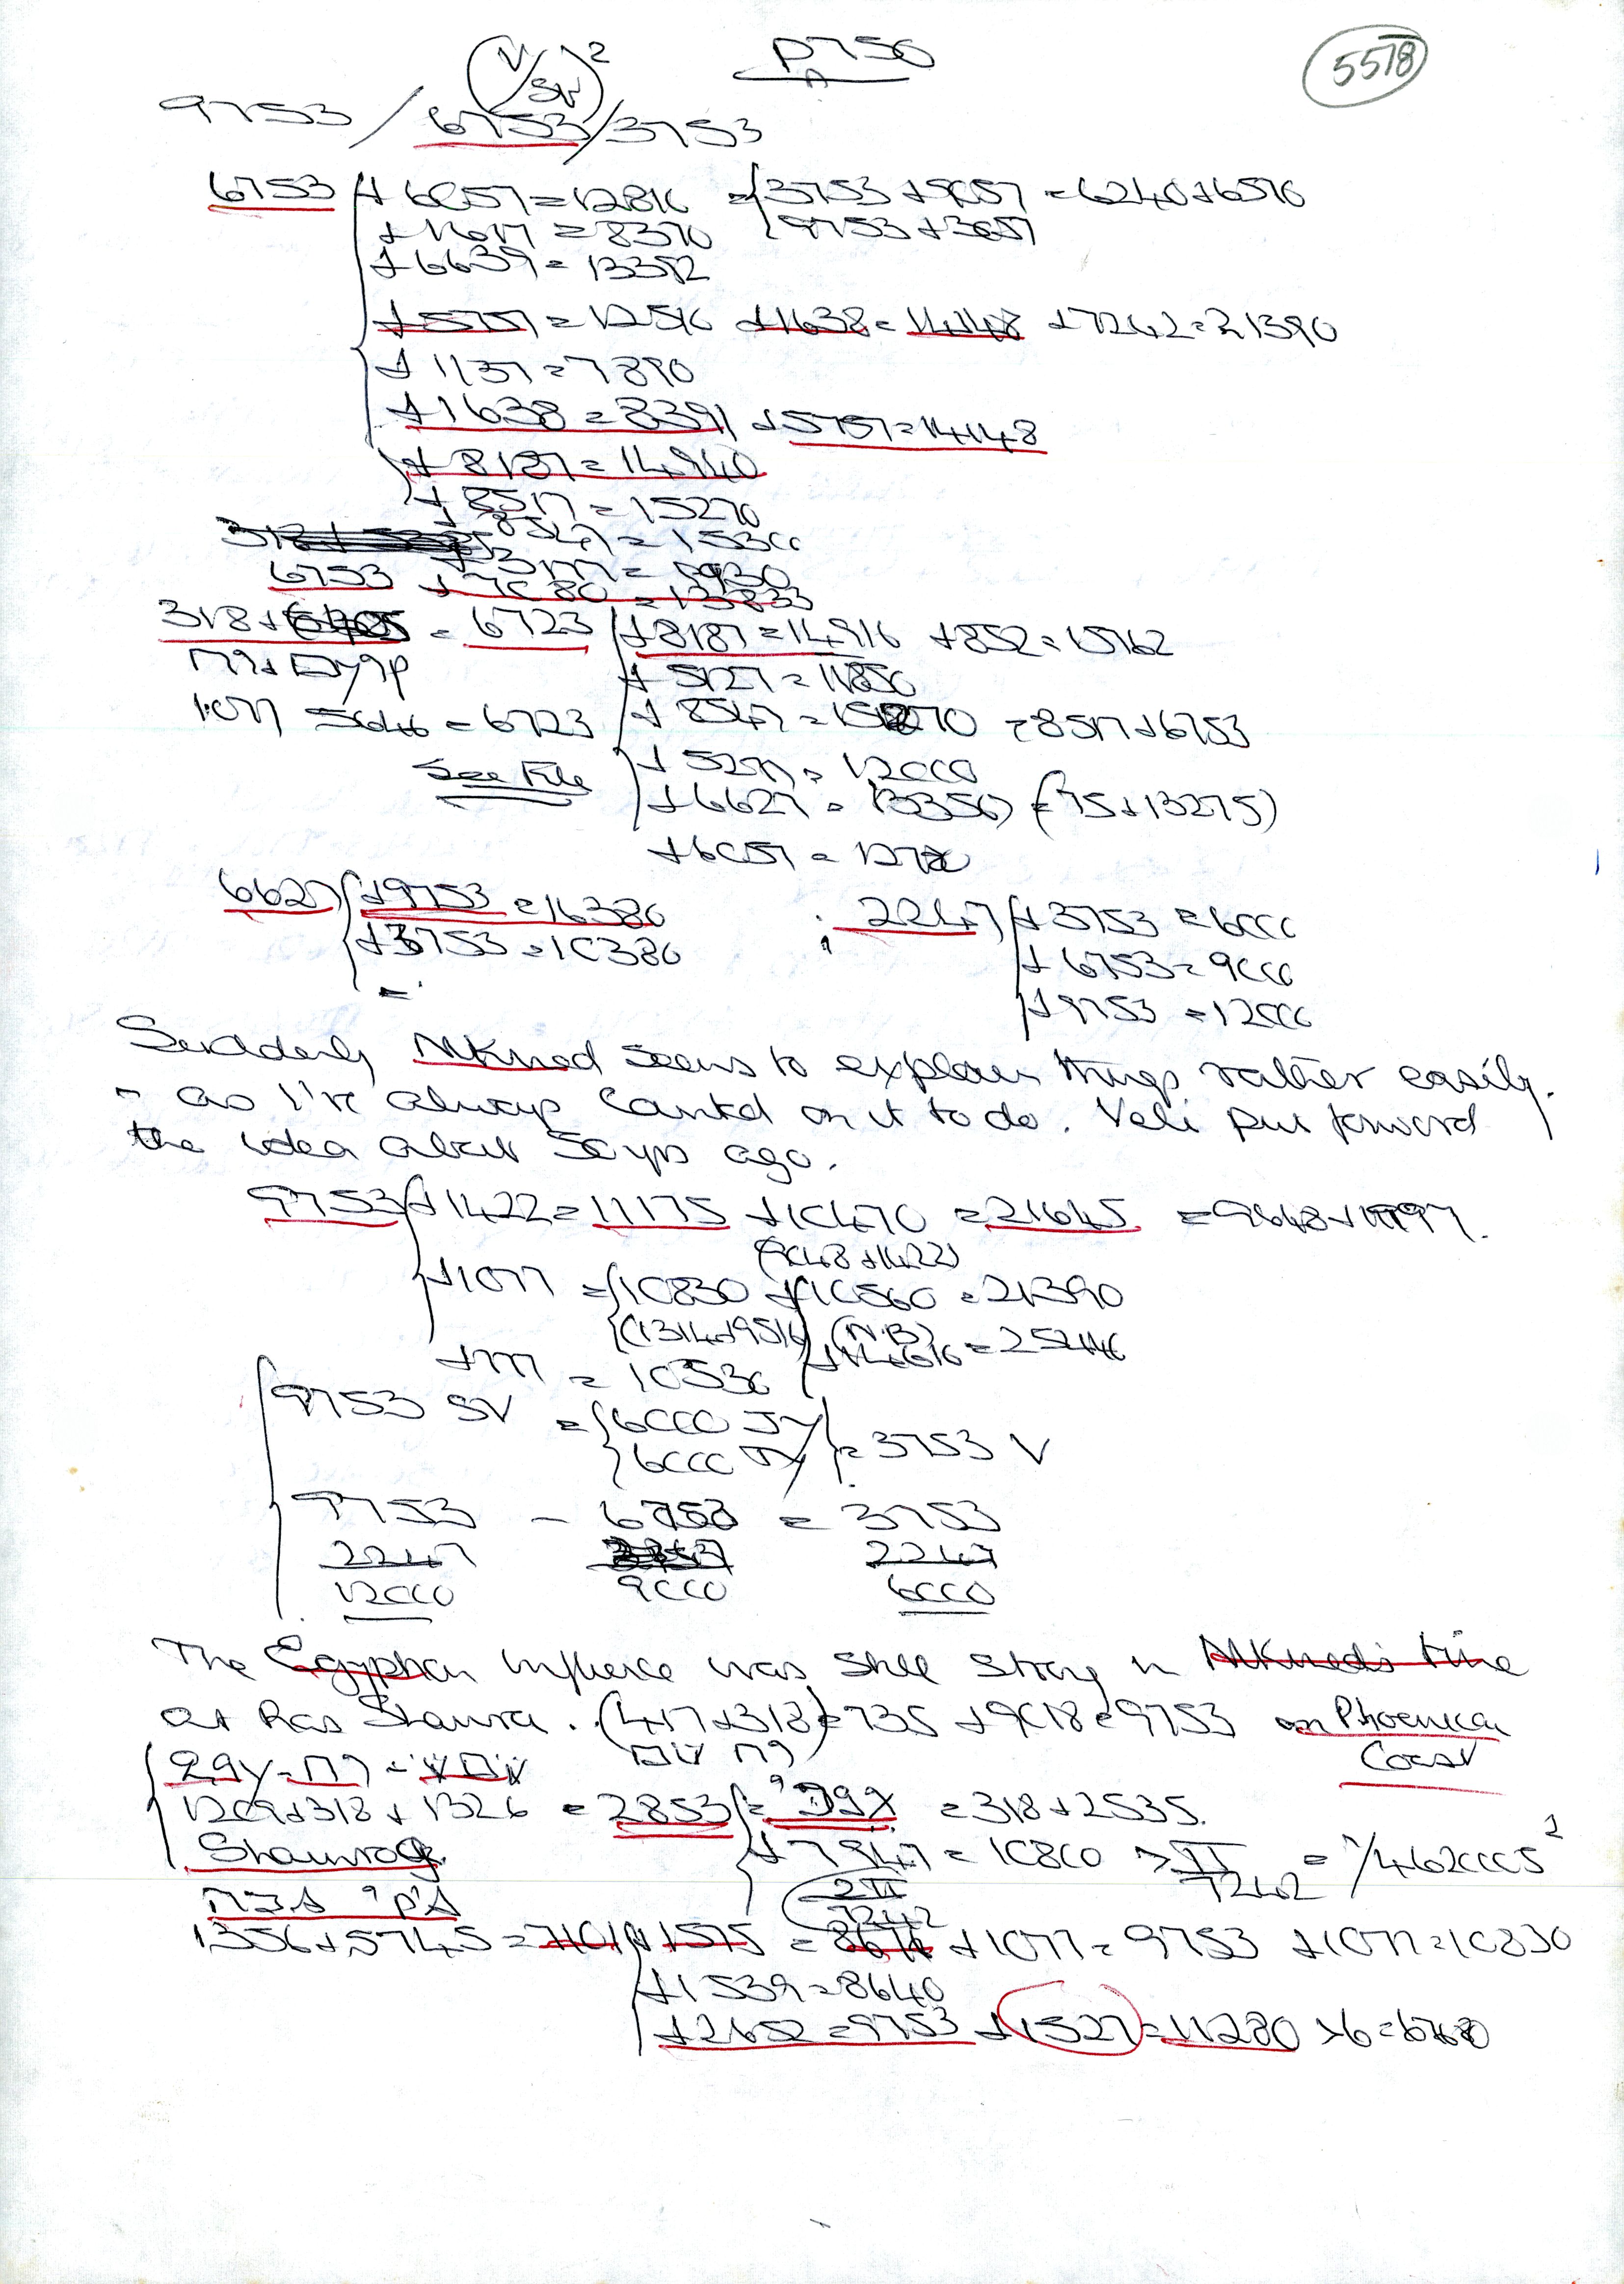 P750
5578
(V/SV)²
9753 / 6753 / 3753
6753 + 6057 = 12810 = 3753 + 9057 = 6240 + 6570
+ 1617 = 8370 9753 + 3057
+ 6639 = 13392
+ 5757 = 12510 + 1638 = 14148 + 7242 = 21390
+ 1137 = 7890
+ 1638 = 8391 + 5757 = 14148
+ 8187 = 14940
+ 8517 = 15270
+ 8547 = 15300
6753 + 7080 = 13833
318 + 6405 = 6723 + 8187 = 14910 + 852 = 15762
+ 5127 = 11850
1077 5646 = 6723 + 8547 = 15270 = 8517 + 6753
See File + 5277 = 12000
+ 6627 = 13350 (= 75 + 13275)
+ 6057 = 12780
6627 + 9753 = 16380 : 2247 + 3753 = 6000
+ 3753 = 10380 + 6753 = 9000
+ 9753 = 12000
Suddenly Alkmed seems to explain things rather easily.
- as I've always counted on it to do. Veli put forward
the idea about 50 yrs ago.
9753 + 1422 = 11175 + 10470 = 21645 = 9648 + 11997.
(9048 + 1422)
+ 1077 = 10830 + 10560 = 21390
(1314 + 9516) (N.B)
+ 777 = 10530 + 14616 = 25446
9753 SV = 6000 = 3753 V
6000
9753 - 6753 = 3753
2247 2247
12000 9000 6000
The Egyptian influence was still strong in Alkmed's time
at Ras Shamra. (417 + 318) = 735 + 9018 = 9753 on Phoenician
Coast
1209 + 318 + 1326 = 2853 = = 318 + 2535.
+ 7947 = 10800
2π
7242
1356 + 5745 = 7101 + 1575 = 8676 + 1077 = 9753 + 1077 = 10830
+ 1539 = 8640
+ 2652 = 9753 + 1527 = 11280 × 6 = 67680